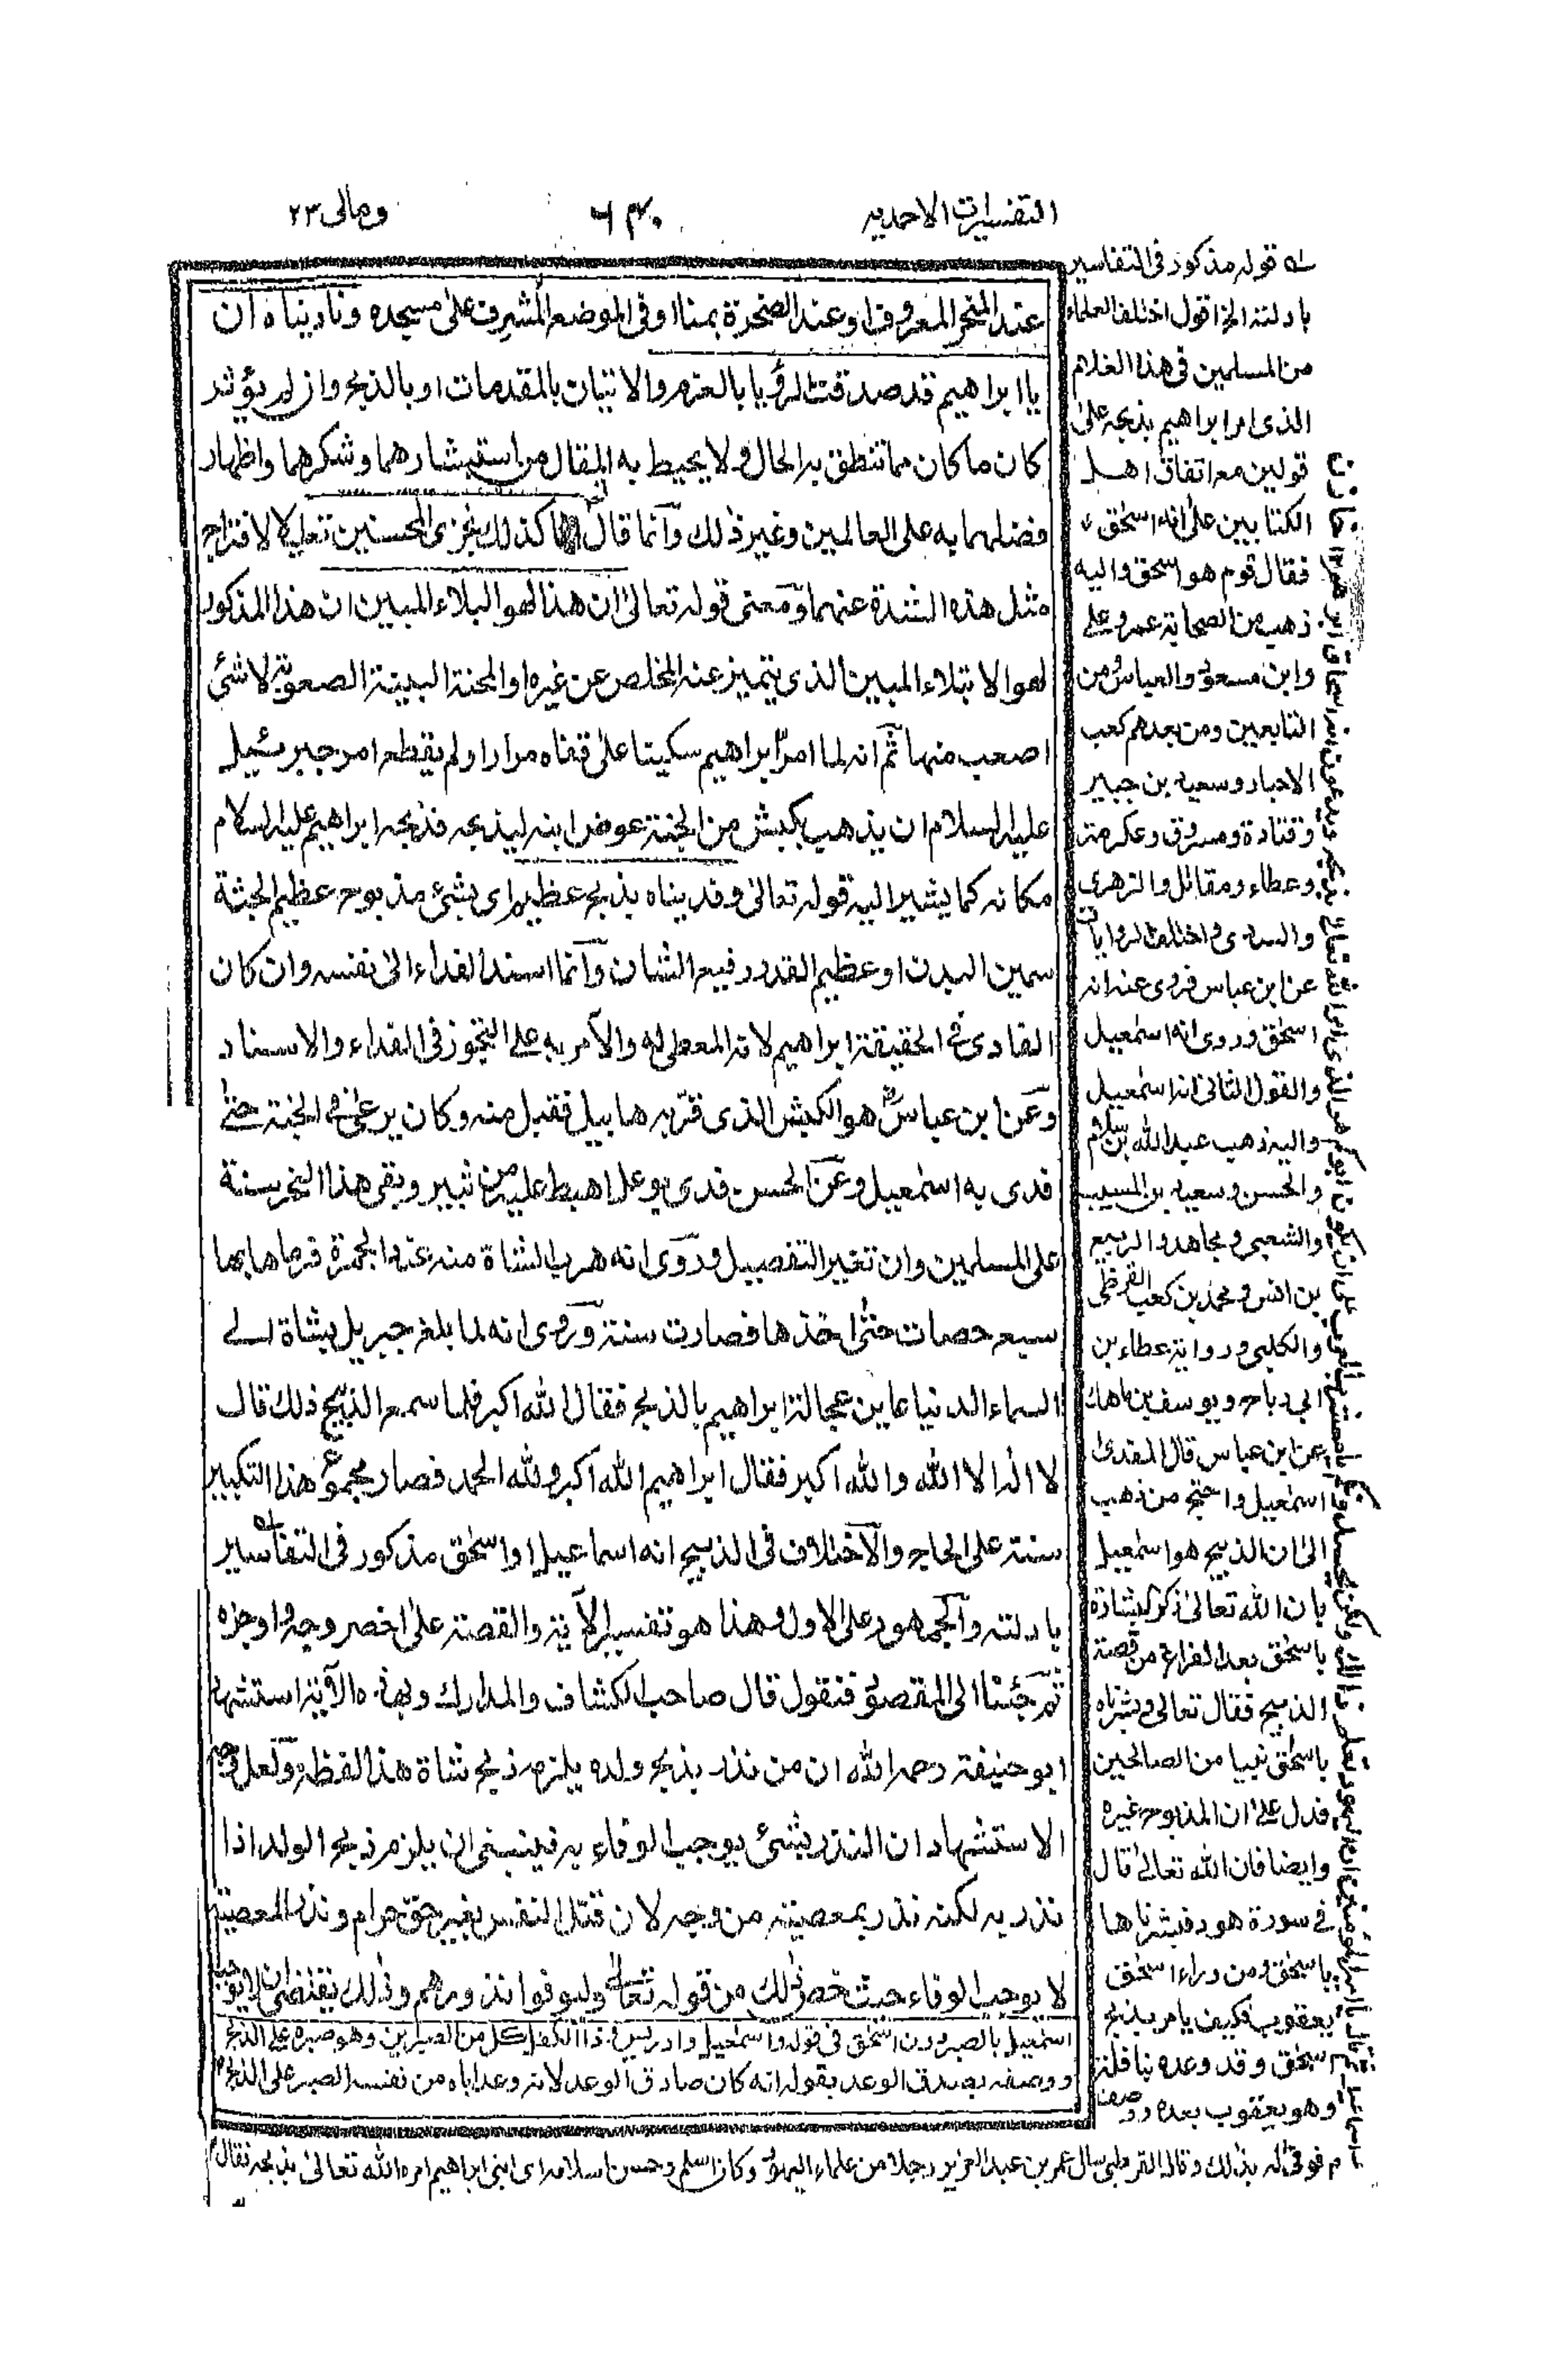 التفسيرات الاحمديه
ومالى ٢٣
عند المنحر المعروف او عند الصخرة بمنا اوفى الموضع المشرف على مسجده وناديناه ان
يا ابراهيم قد صدقت الرؤيا بالعزم والاتيان بالمقدمات او بالذبح وان لم يؤثر
كان ما كان مما تنطق به الحال ولا يحيط به المقال من استبشارهما وشكرهما واظهار
فضلهما به على العالمين وغير ذلك وانما قال كذلك نجزى المحسنين تعليلا لافتراج
مثل هذه الشدة عنهما ومعنى قوله تعالى ان هذا لهو البلاء المبين ان هذا المذكور
لهو الابتلاء المبين الذى يتميز عنه المخلص عن غيره او المحنة البينة الصعوبة لا شئ
اصعب منها ثم انه لما امر ابراهيم سكينا على قفاه مرارا ولم يقطع امر جبرئيل
عليه السلام ان يذهب بكبش من الجنة عوض ابنه ليذبحه فذبحه ابراهيم عليه السلام
مكانه كما يشير اليه قوله تعالى وفديناه بذبح عظيم اى بشئ مذبوح عظيم الجثة
سمين البدن او عظيم القدر رفيع الشان وانما اسند الفداء الى نفسه وان كان
الفادى فى الحقيقة ابراهيم لانه المعطى له والآمر به على التجوز فى الفداء والاسناد
وعن ابن عباس هو الكبش الذى قربه هابيل فقبل منه وكان يرعى فى الجنة حتى
فدى به اسمعيل وعن الحسن فدى بوعل اهبط عليه من ثبير وبقى هذا النحر سنة
على المسلمين وان تغير التفصيل وروى انه هرب الشاة منه عند الجمرة فرماها بها
سبع حصات حتى اخذها فصارت سنة وروى انه لما بلغ جبريل بشاة الى
السماء الدنيا عاين عجالة ابراهيم بالذبح فقال الله اكبر فلما سمع الذبيح ذلك قال
لا اله الا الله والله اكبر فقال ابراهيم الله اكبر ولله الحمد فصار مجموع هذا التكبير
سنة على الحاج والاختلاف فى الذبيح انه اسماعيل او اسحق مذكور فى التفاسير
بادلته والجمهور على الاول وهذا هو تفسير الآية والقصة على اخصر وجه واوجزه
ثم جئنا الى المقصود فنقول قال صاحب الكشاف والمدارك وبهذه الآية استشهد
ابو حنيفة رحمه الله ان من نذر بذبح ولده يلزمه ذبح شاة هذا لفظه ولعل وجه
الاستشهاد ان النذر بشئ يوجب الوفاء به فينبغى ان يلزم ذبح الولد اذا
نذر به لكنه نذر بمعصية من وجه لان قتل النفس بغير حق حرام ونذر المعصية
لا يوجب الوفاء حيث خص ذلك من قوله تعالى وليوفوا نذورهم وذلك يقتضى ان لا يوجب
له قوله مذكور فى التفاسير
بادلته الخ اقول اختلف العلماء
من المسلمين فى هذا الغلام
الذى امر ابراهيم بذبحه على
قولين مع اتفاق اهل
الكتابين على انه اسحق
فقال قوم هو اسحق واليه
ذهب من الصحابة عمر وعلى
وابن مسعود والعباس ومن
التابعين ومن بعدهم كعب
الاحبار وسعيد بن جبير
وقتادة ومسروق وعكرمة
وعطاء ومقاتل والزهرى
والسدى واختلف الروايات
عن ابن عباس فروى عنه انه
اسحق وروى انه اسمعيل
والقول الثانى انه اسمعيل
واليه ذهب عبد الله بن سلام
والحسن وسعيد بن المسيب
والشعبى ومجاهد والربيع
بن انس ومحمد بن كعب القرظى
والكلبى ورواية عطاء بن
ابى رباح ويوسف بن ماهك
عن ابن عباس قال المفدى
اسمعيل واحتج من ذهب
الى ان الذبيح هو اسمعيل
بان الله تعالى ذكر بشارة
باسحق بعد الفراغ من قصة
الذبيح فقال تعالى وبشرناه
باسحق نبيا من الصالحين
فدل على ان المذبوح غيره
وايضا فان الله تعالى قال
فى سورة هود فبشرناها
باسحق ومن وراء اسحق
يعقوب فكيف يامر بذبح
اسحق وقد وعده بنافلة
وهو يعقوب بعده ووصف
اسمعيل بالصبر دون اسحق فى قوله واسمعيل وادريس وذا الكفل كل من الصابرين وهو صبره على الذبح
ووصفه بصدق الوعد بقوله انه كان صادق الوعد لانه وعد اباه من نفسه الصبر على الذبح
فوفى له بذلك وقال القرطبى سال عمر بن عبد العزيز رجلا من علماء اليهود وكان اسلم وحسن اسلامه اى ابنى ابراهيم امره الله تعالى بذبحه فقال